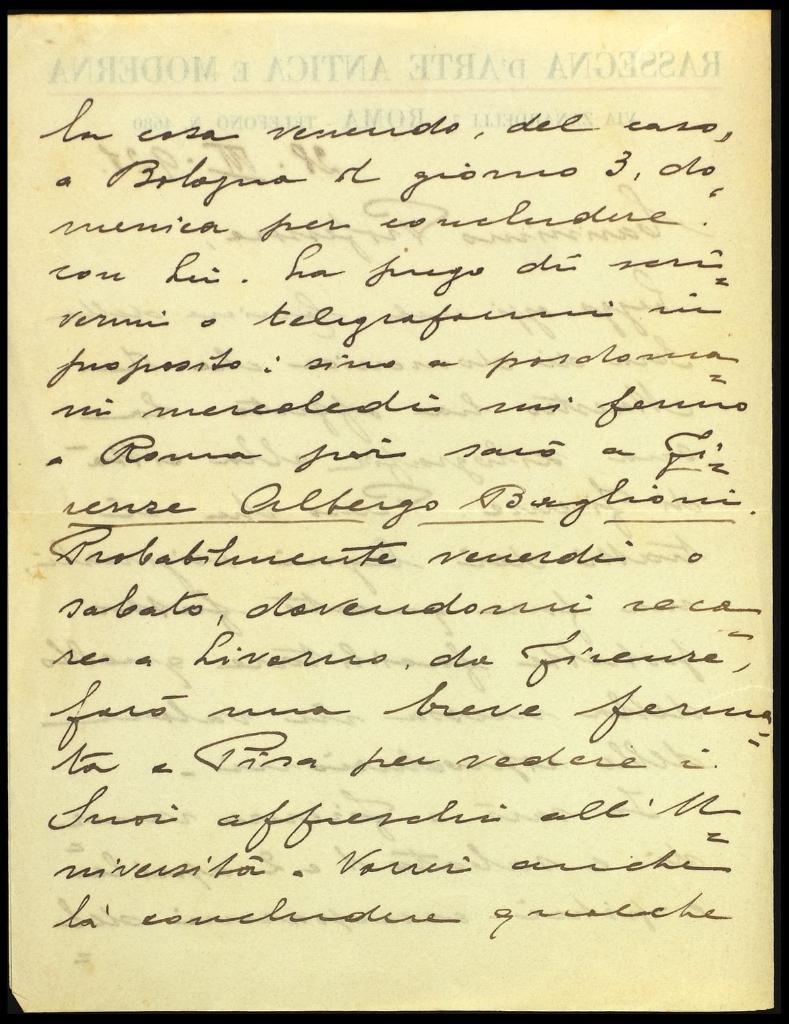 la cosa venendo, del caso,
a Bologna il giorno 3, do=
menica per concludere
con Lei. La prego di scri=
vermi o telegrafarmi in
proposito: sino a posdoma=
ni mercoledì mi fermo
a Roma poi sarò a Fi=
renze Albergo Baglioni.
Probabilmente venerdì o
sabato, dovendomi reca=
re a Livorno, da Firenze,
farò una breve ferma=
ta a Pisa per vedere i
Suoi affreschi all'U=
niversità. Vorrei anche
là concludere qualche